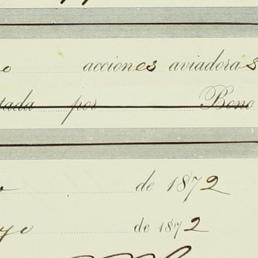 o acciones aviadoras
tada por Bono
de 1872
yo de 1872